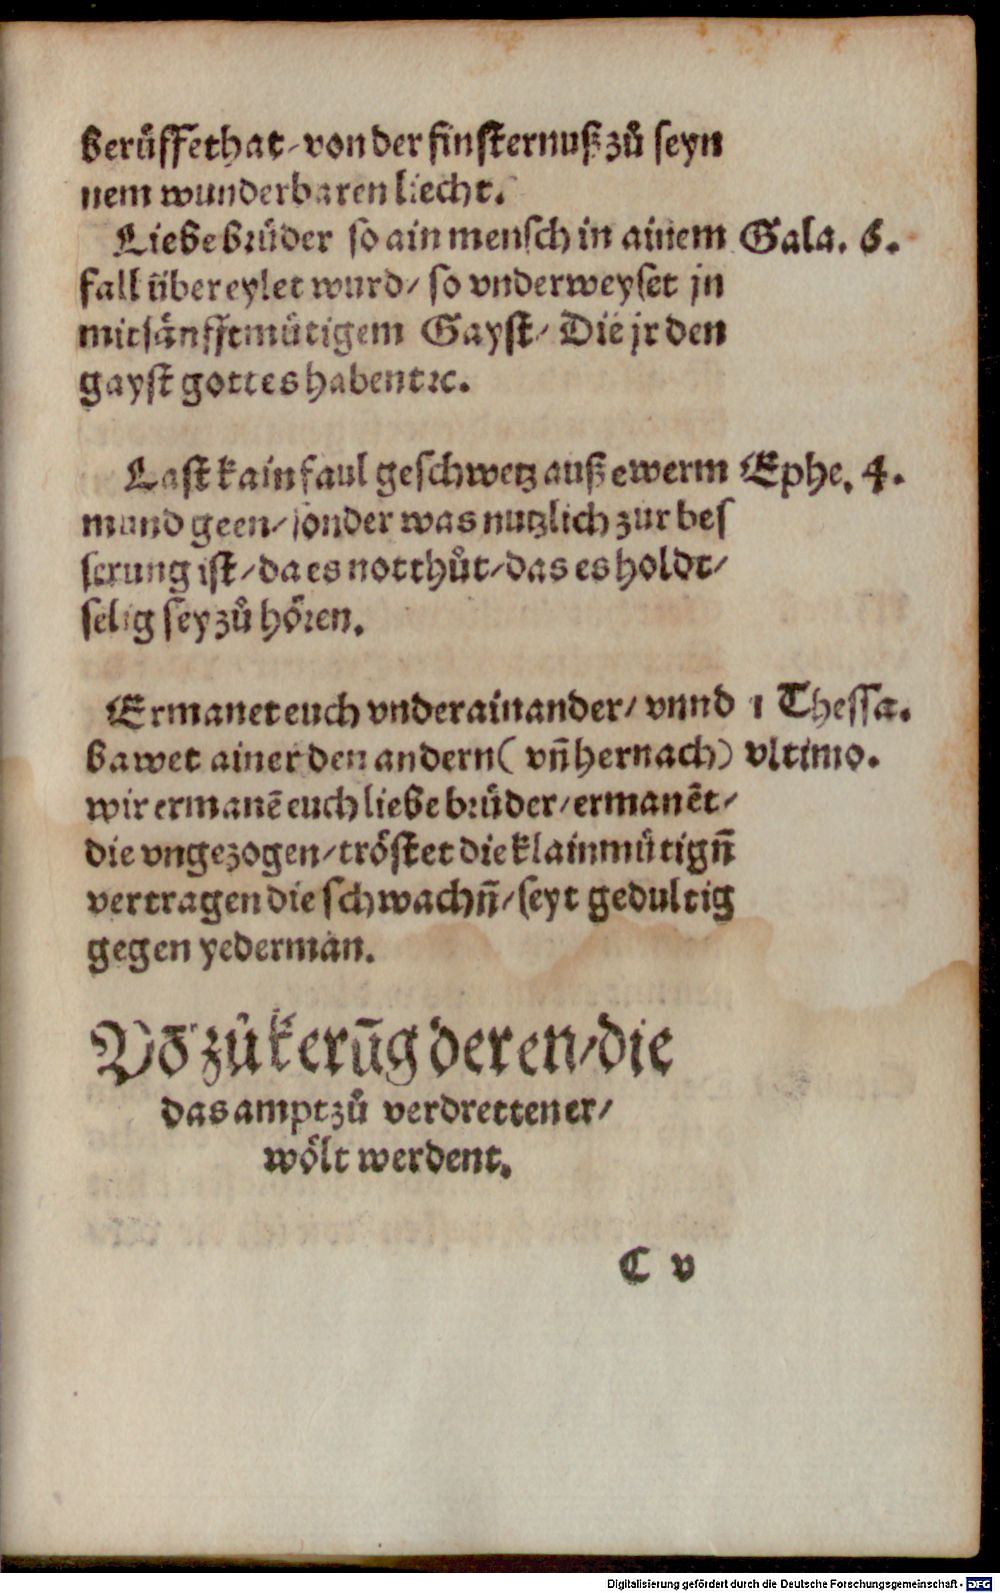 berůffēthat/ von der finsternuß zů seyn
nem wunderbaren liecht.
Liebe brůder so ain mensch in ainem Gala. 6.
fall übereylet wurd/ so vnderweyset jn
mit sänfftmůtigem Gayst/ Die jr den
gayst gottes habent ꝛc.
Last kain faul geschwetz auß ewerm Ephe. 4.
mund geen/ sonder was nutzlich zur bes
serung ist/ da es not thůt/ das es holdt/
selig sey zů hören.
Ermanet euch vnderainander/ vnnd 1 Thessa.
bawet ainer den andern ( vñ hernach) vltimo.
wir ermanē euch liebe brůder/ ermanēt/
die vngezogen/ tröstet die klainmůtigñ
vertragen die schwachñ/ seyt gedultig
gegen yederman.
Võ zůkerūg deren/ die
das ampt zů verdretten er/
wölt werdent.
C v
Digitalisierung gefördert durch die Deutsche Forschungsgemeinschaft - DFG